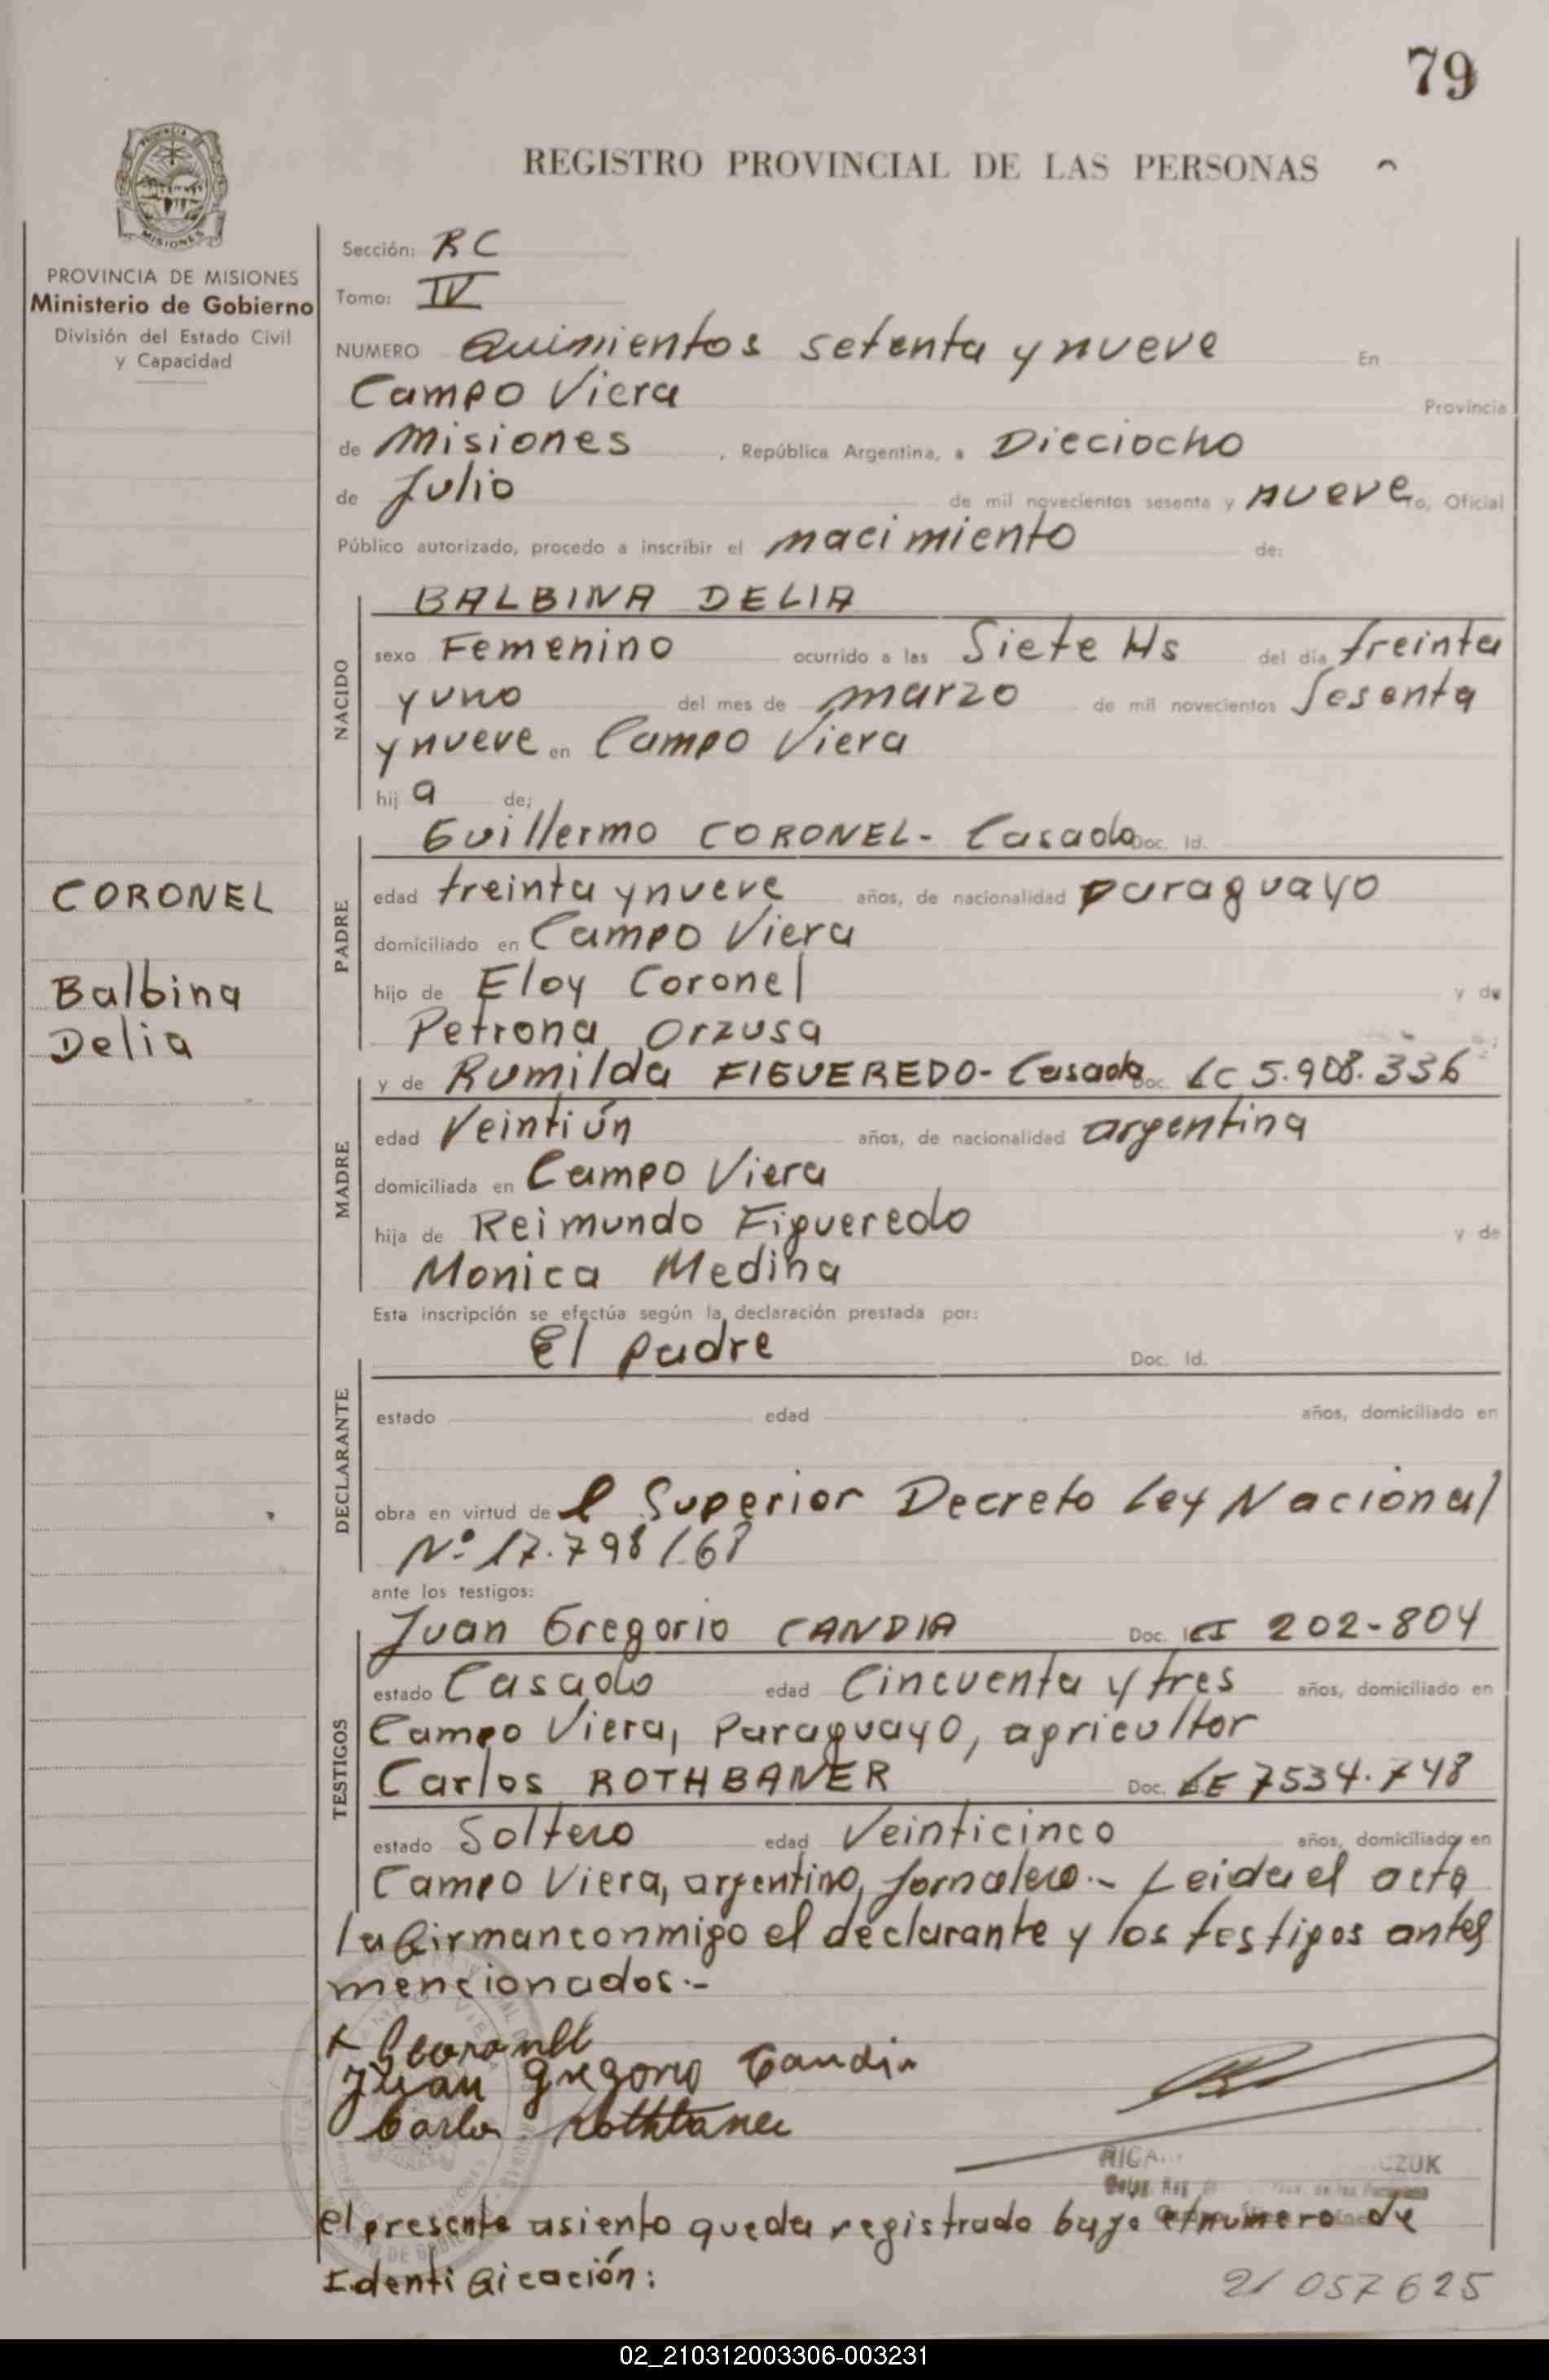 79
REGISTRO PROVINCIAL DE LAS PERSONAS
PROVINCIA DE MISIONES
Ministerio de Gobierno
División del Estado Civil
y Capacidad
Sección: RC
Tomo: IV
NUMERO Quinientos setenta y nueve En
Campo Viera Provincia
de Misiones , República Argentina, a Dieciocho
de Julio de mil novecientos sesenta y nueve to, Oficial
Público autorizado, procedo a inscribir el nacimiento de:
NACIDO
BALBINA DELIA
sexo Femenino ocurrido a las Siete Hs del día treinta
y uno del mes de marzo de mil novecientos Sesenta
y nueve en Campo Viera
hij a de:
PADRE
Guillermo CORONEL- Casado Doc. Id.
edad treinta y nueve años, de nacionalidad paraguayo
domiciliado en Campo Viera
hijo de Eloy Coronel y de
Petrona Orzusa
CORONEL
Balbina
Delia
MADRE
y de Rumilda FIGUEREDO- Casada Doc. LC 5.908.336
edad Veintiún años, de nacionalidad argentina
domiciliada en Campo Viera
hija de Reimundo Figueredo y de
Monica Medina
Esta inscripción se efectúa según la declaración prestada por:
DECLARANTE
El padre Doc. Id.
estado edad años, domiciliado en
obra en virtud de l Superior Decreto Ley Nacional
Nº 17.798/68
ante los testigos:
TESTIGOS
Juan Gregorio CANDIA Doc. CI 202-804
estado Casado edad Cincuenta y tres años, domiciliado en
Campo Viera, Paraguayo, agricultor
Carlos ROTHBANER Doc. LE 7534.748
estado Soltero edad Veinticinco años, domiciliado en
Campo Viera, argentino, Jornalero.- Leida el acta
la firman conmigo el declarante y los testigos antes
mencionados.-
Juan Gregorio Candia
Carlos Rothbaner
RICA CZUK
el presente asiento queda registrado bajo el numero de
Identificación: 21 057 625
02_210312003306-003231